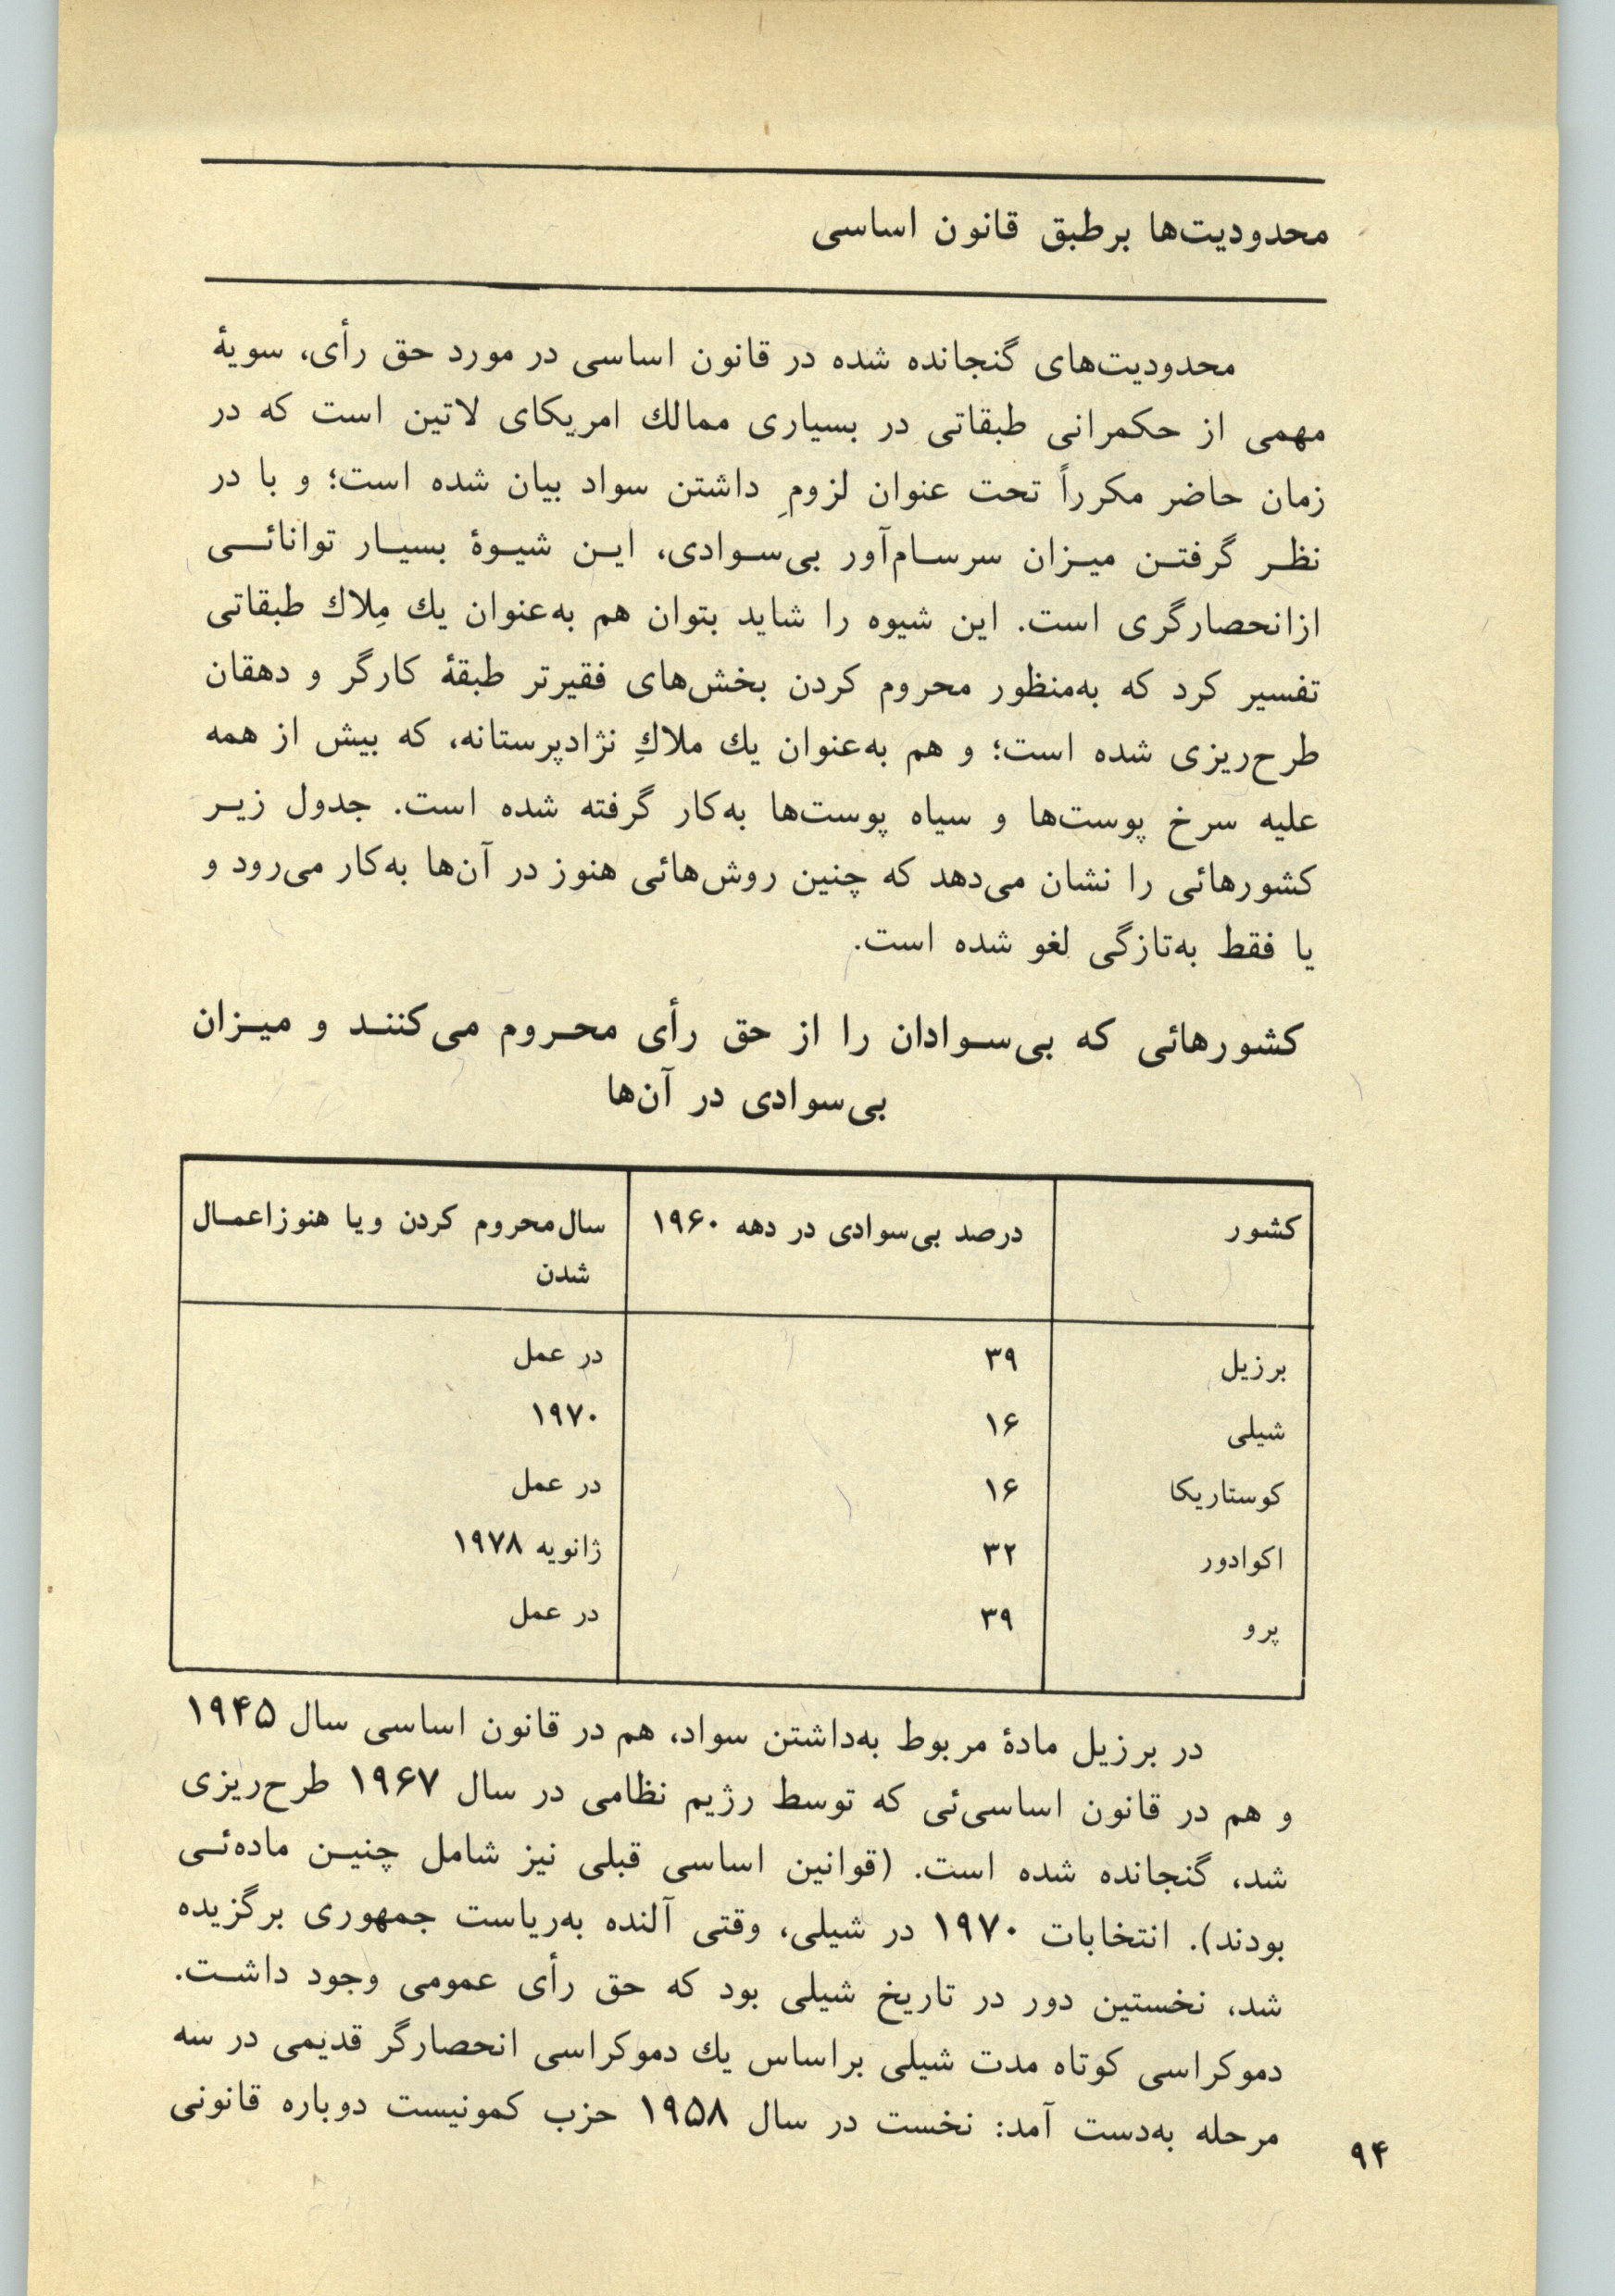 محدودیت‌ها برطبق قانون اساسی
محدودیت‌های گنجانده شده در قانون اساسی در مورد حق رأی، سویهٔ
مهمی از حکمرانی طبقاتی در بسیاری ممالك امریکای لاتین است که در
زمان حاضر مکرراً تحت عنوان لزومِ داشتن سواد بیان شده است؛ و با در
نظـر گرفتـن میـزان سرسـام‌آور بی‌سـوادی، ایـن شیـوهٔ بسیـار توانائــی
ازانحصارگری است. این شیوه را شاید بتوان هم به‌عنوان یك مِلاك طبقاتی
تفسیر کرد که به‌منظور محروم کردن بخش‌های فقیرتر طبقهٔ کارگر و دهقان
طرح‌ریزی شده است؛ و هم به‌عنوان یك ملاكِ نژادپرستانه، که بیش از همه
علیه سرخ پوست‌ها و سیاه پوست‌ها به‌کار گرفته شده است. جدول زیـر
کشورهائی را نشان می‌دهد که چنین روش‌هائی هنوز در آن‌ها به‌کار می‌رود و
یا فقط به‌تازگی لغو شده است.
کشورهائی که بی‌سـوادان را از حق رأی محـروم می‌کننـد و میـزان
بی‌سوادی در آن‌ها
کشور درصد بی‌سوادی در دهه ۱۹۶۰ سال‌محروم کردن ویا هنوزاعمـال
شدن
برزیل ۳۹ در عمل
شیلی ۱۶ ۱۹۷۰
کوستاریکا ۱۶ در عمل
اکوادور ۳۲ ژانویه ۱۹۷۸
پرو ۳۹ در عمل
در برزیل مادهٔ مربوط به‌داشتن سواد، هم در قانون اساسی سال ۱۹۴۵
و هم در قانون اساسی‌ئی که توسط رژیم نظامی در سال ۱۹۶۷ طرح‌ریزی
شد، گنجانده شده است. (قوانین اساسی قبلی نیز شامل چنیـن ماده‌ئـی
بودند). انتخابات ۱۹۷۰ در شیلی، وقتی آلنده به‌ریاست جمهوری برگزیده
شد، نخستین دور در تاریخ شیلی بود که حق رأی عمومی وجود داشـت.
دموکراسی کوتاه مدت شیلی براساس یك دموکراسی انحصارگر قدیمی در سه
مرحله به‌دست آمد: نخست در سال ۱۹۵۸ حزب کمونیست دوباره قانونی
۹۴